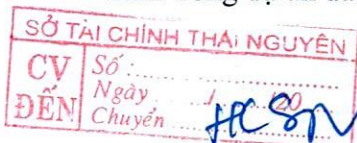 SỞ TÀI CHÍNH THÁI NGUYÊN
CV ĐẾN
Số:
Ngày ..../..../20....
Chuyển HCSN